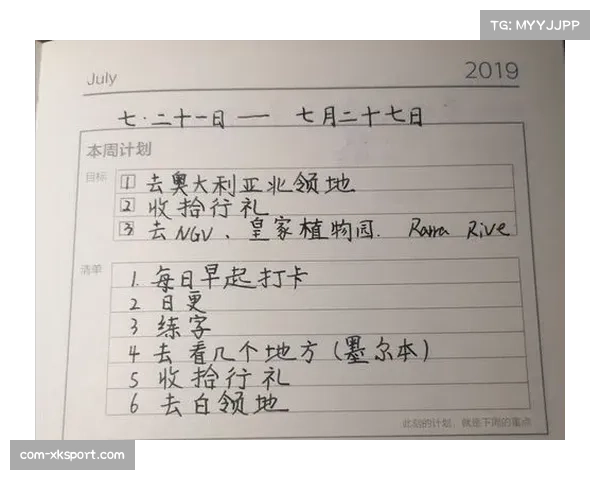 TG: MYYJJPP
July 2019
七·二十一日 — 七月二十七日
本周计划
目标
1 去奥大利亚北领地
2 收拾行礼
3 去NGV、皇家植物园. Rarra Rive
清单
1. 每日早起打卡
2 日更
3 练字
4 去看几个地方(墨尔本)
5 收拾行礼
6 去白领地
此刻的计划,就是下周的重点
com-xksport.com